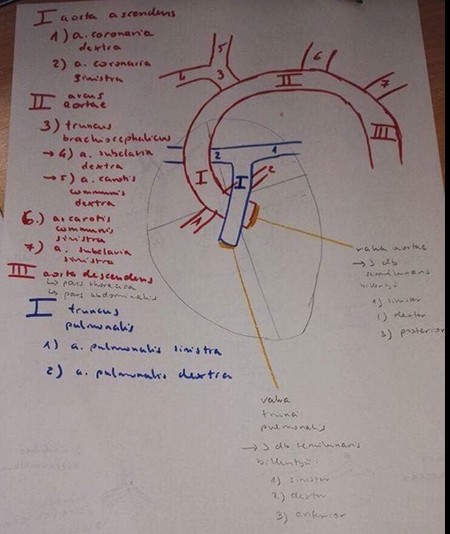 I aorta ascendens
1) a. coronaria
dextra
2) a. coronaria
sinistra
II arcus
aortae
3) truncus
brachiocephalicus
→ 4) a. subclavia
dextra
→ 5) a. carotis
communis
dextra
6.) a. carotis
communis
sinistra
7) a. subclavia
sinistra
III aorta descendens
↳ pars thoracica
↳ pars abdominalis
I truncus
pulmonalis
1) a. pulmonalis sinistra
2) a. pulmonalis dextra
5
4
3
6
II
7
III
2
1
I
I
2
1
valva aortae
→ 3 db
semilunaris
billentyű
1) sinister
2) dexter
3) posterior
valva
trunci
pulmonalis
→ 3 db semilunaris
billentyű:
1) sinister
2) dexter
3) anterior